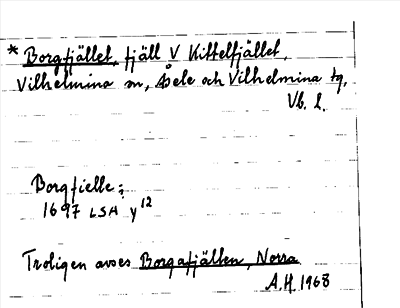 * Borgfjället, fjäll V Kittelfjället,
Vilhelmina sn, Åsele och Vilhelmina tg,
Vb. l.
Borgfielle:
1697 LSA y12
Troligen avses Borgafjällen, Norra
A.H. 1968